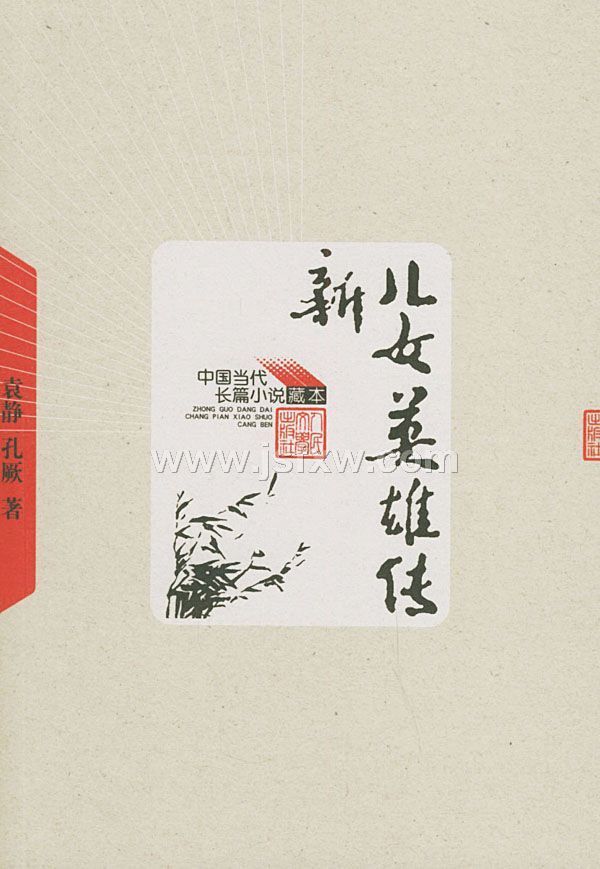 新
儿女英雄传
中国当代
长篇小说藏本
ZHONG GUO DANG DAI
CHANG PIAN XIAO SHUO
CANG BEN
人民
文学
出版社
袁静 孔厥 著
出版社
www.jslxw.com